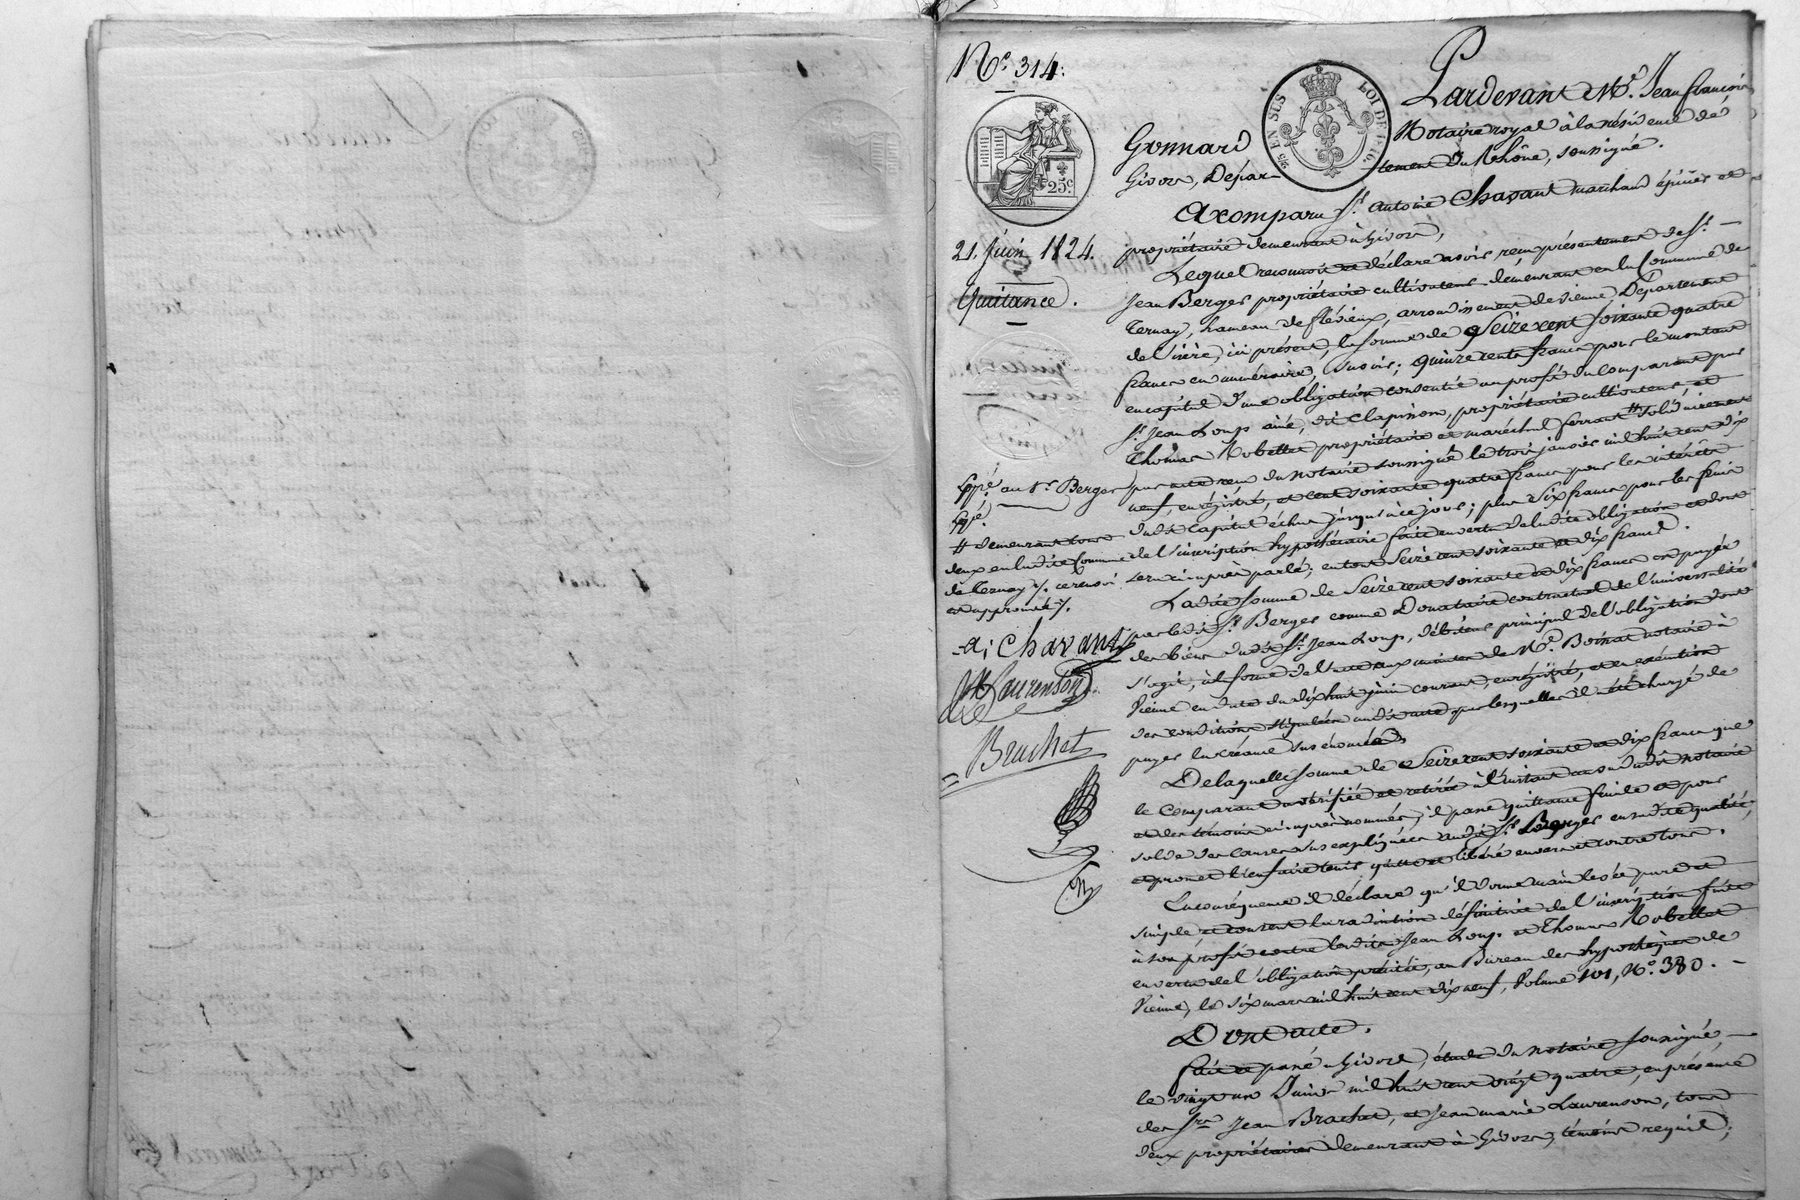 N.° 314.
25 EN SUS
LOI DE 1816.
25 c.
21. Juin 1824.
Quitance.
Expé. au Sr. Berger
Expé.
# demeurant tous
deux en ladite Commune
de Ternay ./. ce renvoi
est approuvé ./.
A; Chavant
JM Laurenson
Brachet
Pardevant Me. Jean François
Gonnard Notaire royal à la résidence de
Givors, Département du Rhône, soussigné.
A comparu Sr. Antoine Chavant marchand épicier et
propriétaire demeurant à Givors,
Lequel reconnoit et déclare avoir reçu présentement de Sr.
Jean Berger propriétaire cultivateur demeurant en la Commune de
Ternay, hameau de flévieux, arrondissement de vienne, Département
de l'isère, ici présent, la somme de Seize cent soixante quatre
francs en numéraire, savoir; quinze cents francs pour le montant
en capital d'une obligation consentie au profit du comparant par
Sr. Jean Loup ainé, dit Clapisson, propriétaire cultivateur, et
Thomas Robellet propriétaire et maréchal ferrant # solidairement
par acte reçu du notaire soussigné le trois janvier mil huit cent dix
neuf, enrégistré, et cent soixante quatre francs pour les intérêts
dudit capital échus jusqu'à ce jour; plus Six francs pour les frais
de l'inscription hypothécaire faite en vertu de ladite obligation et dont
sera ci après parlé; en tout Seize cent soixante et dix francs.
Ladite somme de Seize cent soixante et dix francs est payée
par ledit Sr. Berger comme Donataire contractuel de l'universalité
des biens dudit Sr. Jean Loup, débiteur principal de l'obligation dont
s'agit, à la forme de l'acte aux minutes de Me. Boinat notaire à
Vienne en date du dix huit juin courant, enrégistré, et en exécution
des conditions stipulées audit acte par lesquelles il a été chargé de
payer la créance sus énoncée.
De laquelle somme de Seize cent soixante et dix francs que
le Comparant a vérifiée et retirée à l'instant au vu dudit notaire
et des témoins ci après nommés, il passe quittance finale et pour
solde des causes sus expliquées audit Sr. Berger en sadite qualité,
et promet l'en faire tenir quitte et libéré envers et contre tous.
En conséquence il déclare qu'il donne main levée pure et
simple et consent la radiation définitive de l'inscription faite
à son profit contre lesdits Jean Loup et Thomas Robellet
en vertu de l'obligation précitée, au Bureau des hypothèques de
Vienne, le six mars mil huit cent dix neuf, Volume 101, N.° 380.
Dont acte.
fait et passé à Givors, étude du notaire soussigné,
le vingt un Juin mil huit cent vingt quatre, en présence
des Srs. Jean Brachet, et Jean marie Laurenson, tous
deux propriétaires demeurant à Givors, témoins requis;